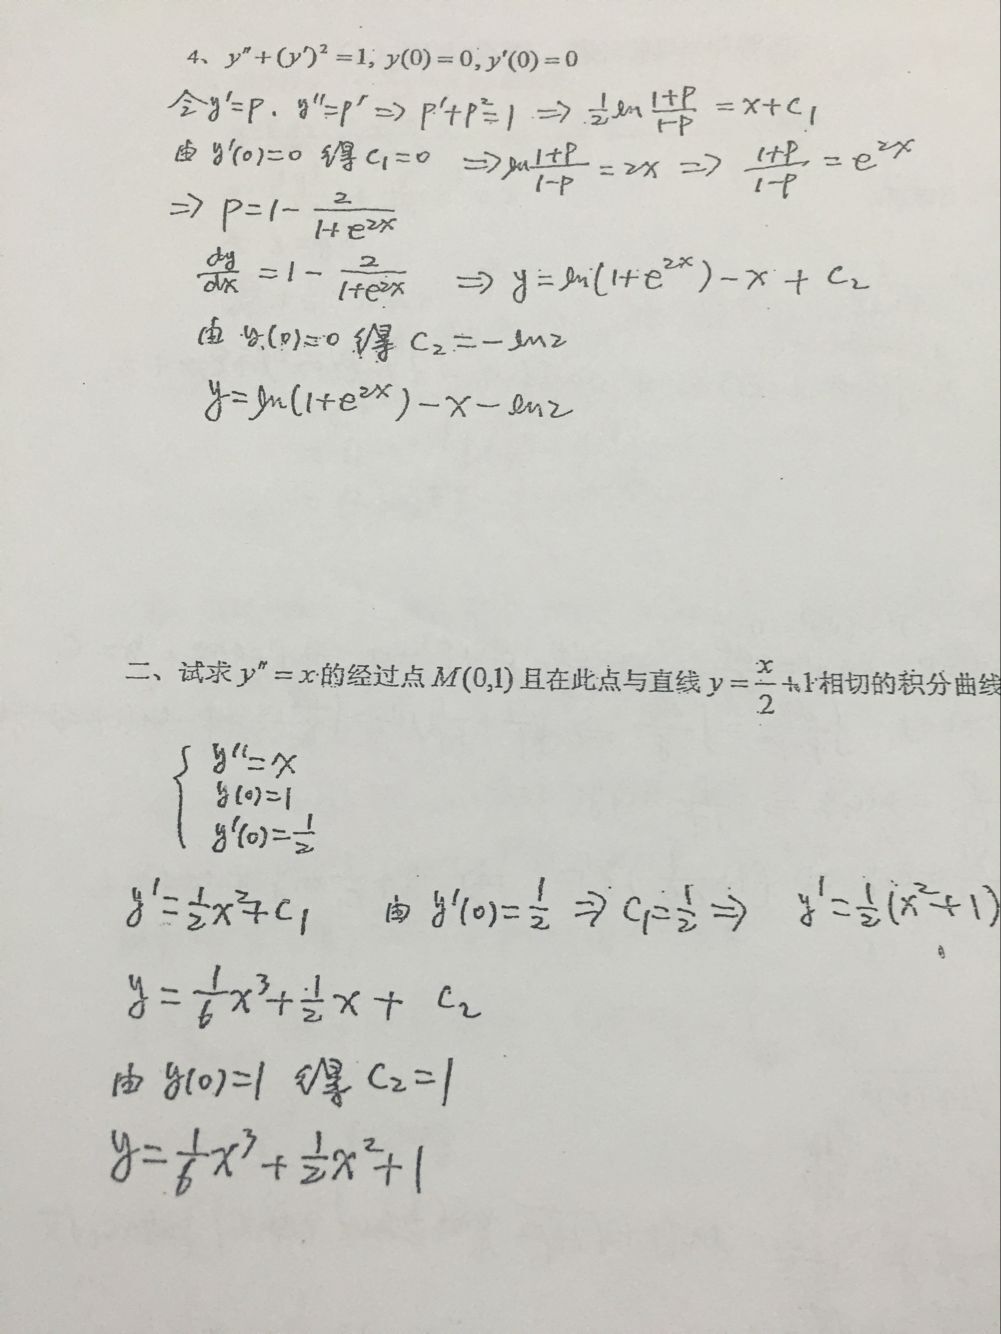 4、y″+(y′)²=1, y(0)=0, y′(0)=0
令y'=p. y''=p' => p'+p²=1 => 1/2 ln (1+p)/(1-p) = x+C₁
由 y'(0)=0 得 C₁=0 => ln (1+p)/(1-p) = 2x => (1+p)/(1-p) = e^{2x}
=> p=1- 2/(1+e^{2x})
dy/dx = 1 - 2/(1+e^{2x}) => y=ln(1+e^{2x})-x+C₂
由 y(0)=0 得 C₂=-ln2
y=ln(1+e^{2x})-x-ln2
二、试求 y″=x的经过点 M(0,1) 且在此点与直线 y= x/2 +1相切的积分曲线
{ y''=x
y(0)=1
y'(0)=1/2
y'=1/2 x²+C₁ 由 y'(0)=1/2 => C₁=1/2 => y'=1/2(x²+1)
y=1/6 x³+1/2 x+C₂
由 y(0)=1 得 C₂=1
y=1/6 x³+1/2 x²+1